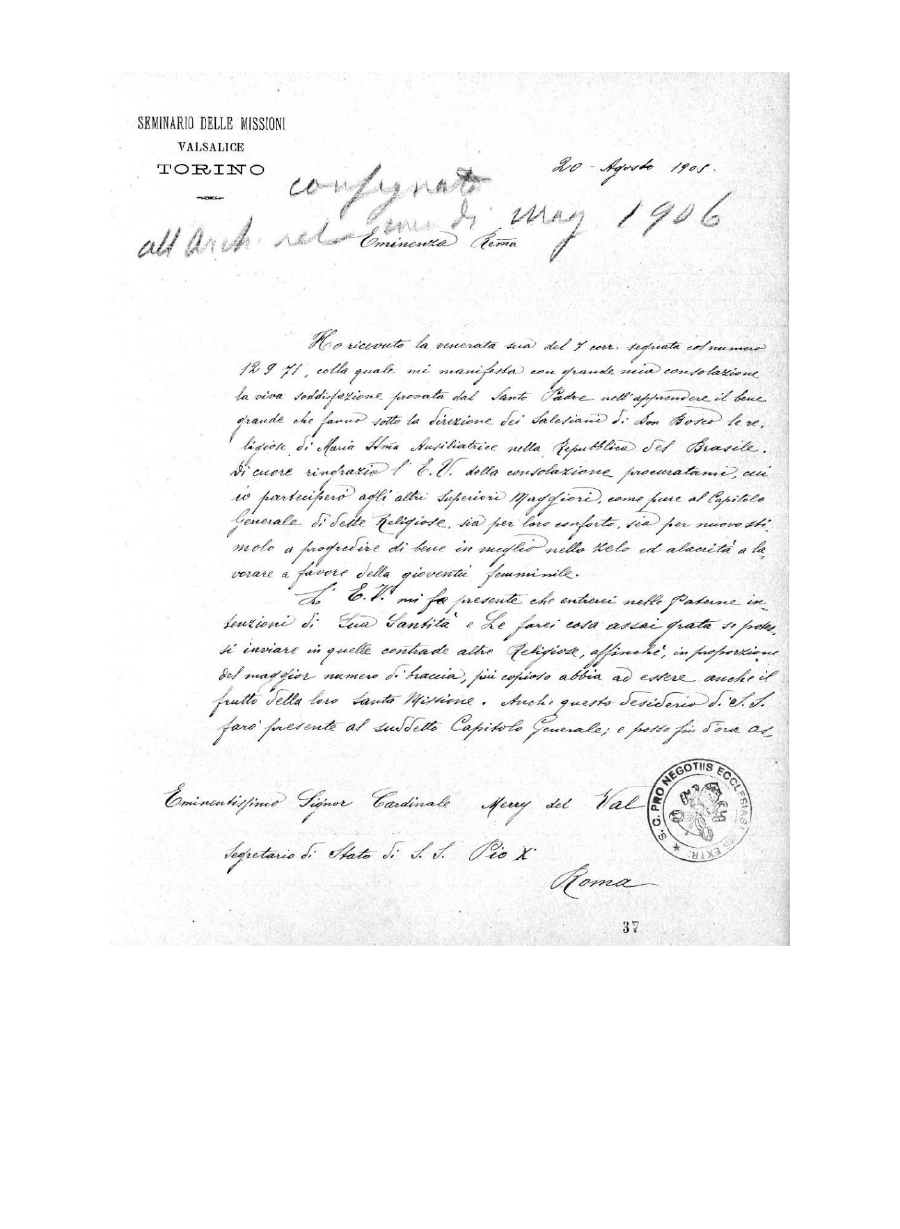 SEMINARIO DELLE MISSIONI
VALSALICE
TORINO
20 - Agosto 1905.
consegnato
all'Arch. di mag 1906
Eminenza Rema
Ho ricevuto la venerata sua del 7 corr. segnata col numero
12971, colla quale mi manifesta con grande mia consolazione
la viva soddisfazione provata dal Santo Padre nell'apprendere il bene
grande che fanno sotto la direzione dei Salesiani di Don Bosco le re-
ligiose di Maria SSma Ausiliatrice nella Repubblica del Brasile.
Di cuore ringrazio l'E.V. della consolazione procuratami, cui
io parteciperò agli altri Superiori Maggiori, come pure al Capitolo
Generale di dette Religiose, sia per loro conforto, sia per nuovo sti-
molo a progredire di bene in meglio nello zelo ed alacrità a la-
vorare a favore della gioventù femminile.
L'E.V. mi fa presente che entrerei nelle Paterne in-
tenzioni di Sua Santità e Le farei cosa assai grata se potes-
si inviare in quelle contrade altre Religiose, affinchè, in proporzione
del maggior numero di braccia, più copioso abbia ad essere anche il
frutto della loro Santa Missione. Anche questo desiderio di S.S.
farò presente al suddetto Capitolo Generale; e posso fin d'ora as-
Eminentissimo Signor Cardinale Merry del Val
Segretario di Stato di S.S. Pio X
Roma
S. C. PRO NEGOTIIS ECCLESIAST EXTR.
37